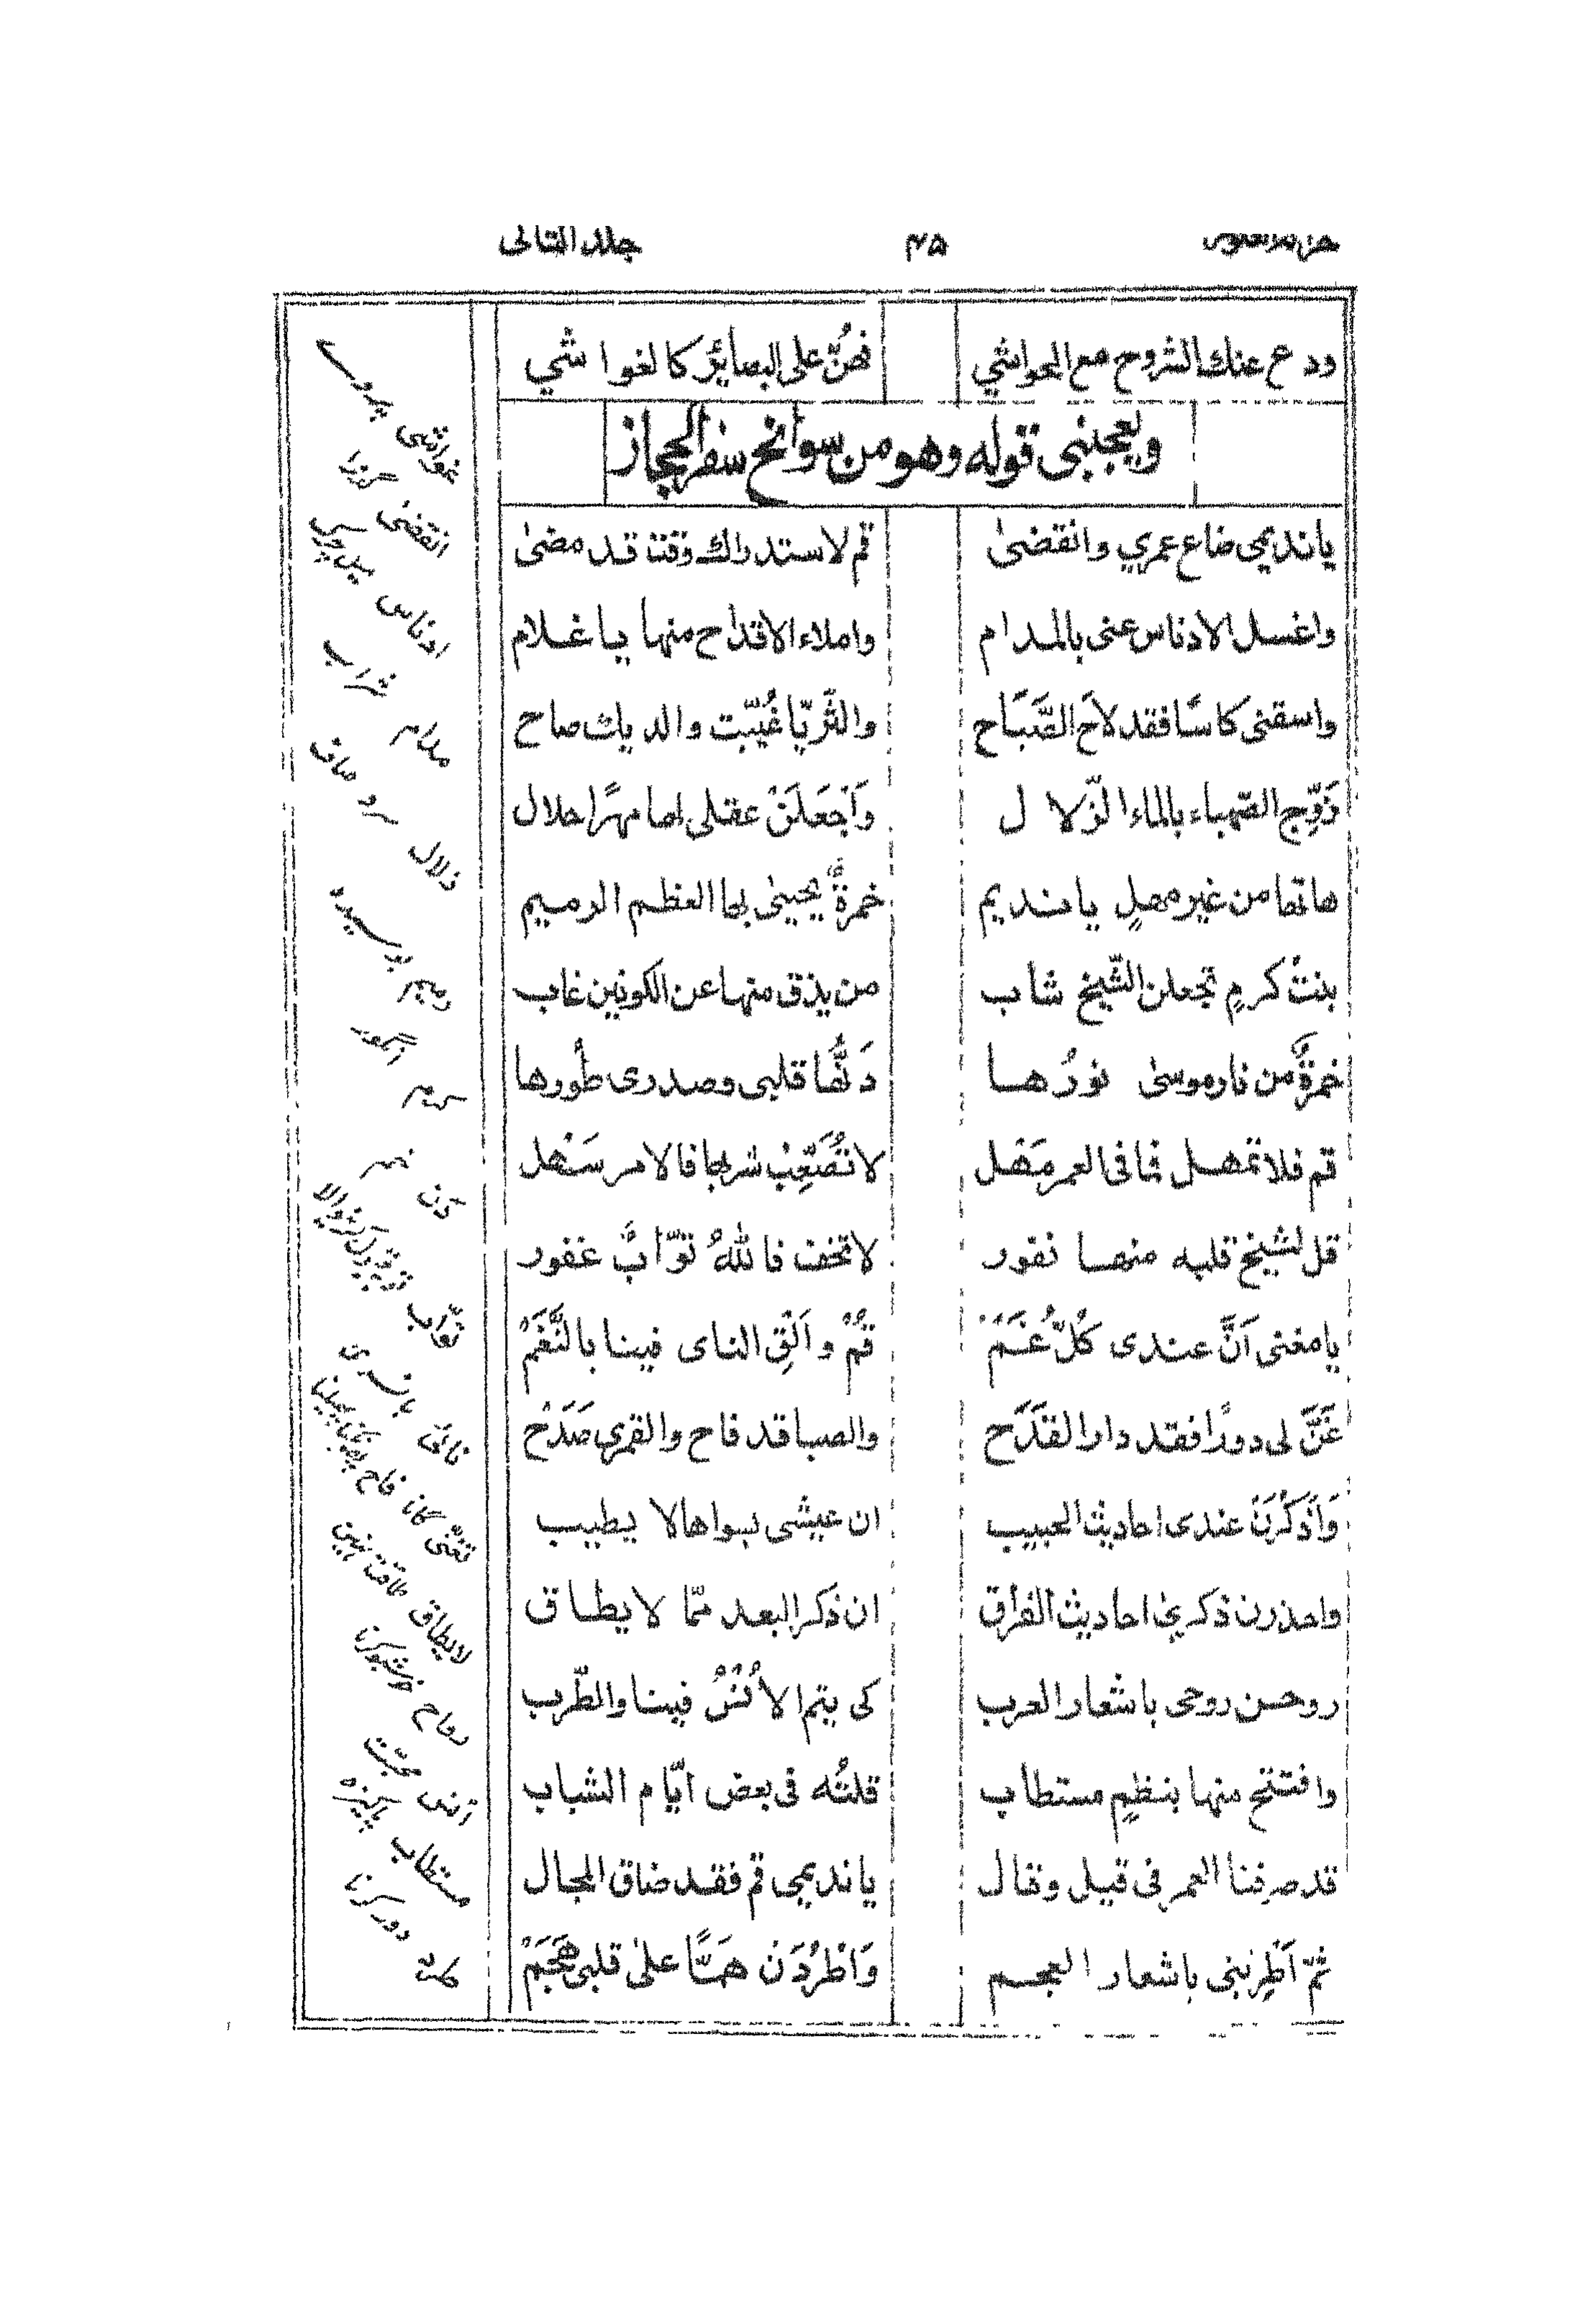 ۴۵ جلد الثانى
ودع عنك الشروح مع الحواشي فهُنّ على البصائر كالغواشي
ويعجبنى قوله وهو من سوانح سفر الحجاز
يا نديمي ضاع عمري وانقضىٰ قم لاستدراك وقت قد مضىٰ
واغسل الادناس عنى بالمدام واملاء الاقداح منها يا غلام
واسقنى كاسًا فقد لاحَ الصَّبَاح والثَّريّا غُيّبت والديك صاح
زَوِّج الصّهباء بالماء الزّلال وَاَجْعَلَنْ عقلى لها مهرًا حلال
هاتها من غير مهلٍ يا نديم خمرةٌ يحيىٰ بها العظم الرميم
بنتُ كرمٍ تجعلن الشّيخ شاب من يذق منها عن الكونين غاب
خمرةٌ من نار موسىٰ نورُها دَنُّها قلبى وصدرى طُورها
قم فلا تمهل فما فى العمر مَهَل لا تُصَعِّبْ شربها فالامر سَهْل
قل لشيخ قلبه منها نفور لا تخف فاللهُ توّابٌ غفور
يا مغنى اَنَّ عندى كُلّ غَمّْ قُمْ و اَلْقِ الناى فينا بالنَّغَمْ
غَنَّ لى دورًا فقد دار القَدَح والصبا قد فاح والقمرى صَدَحْ
وَاَذكُرَنْ عندى احاديث الحبيب ان عيشى بسواها لا يطيب
واحذرن ذكري احاديث الفراق ان ذكر البعد ممّا لا يطاق
روحن روحى باشعار العرب كى يتم الاُنْسُ فينا والطّرب
وافتتح منها بنظمٍ مستطاب قلتُه فى بعض ايّام الشباب
قد صرفنا العمر فى قيل وقال يا نديمى قم فقد ضاق المجال
ثمّ اَطْرِبْنى باشعار العجم وَاَطْرُدَنْ هَمًّا علىٰ قلبى هَجَمْ
غواشى
انقضىٰ
ادناس
شراب
مدام
سرد صاف
زلال
بوسيده
رميم
انگور
كرم
خم
دن
توّاب
بانسرى
ناى
تغنّى گانا
لايطاق طاقت نہیں
انس محبّت
مستطاب پاكيزه
طرد دور كرنا